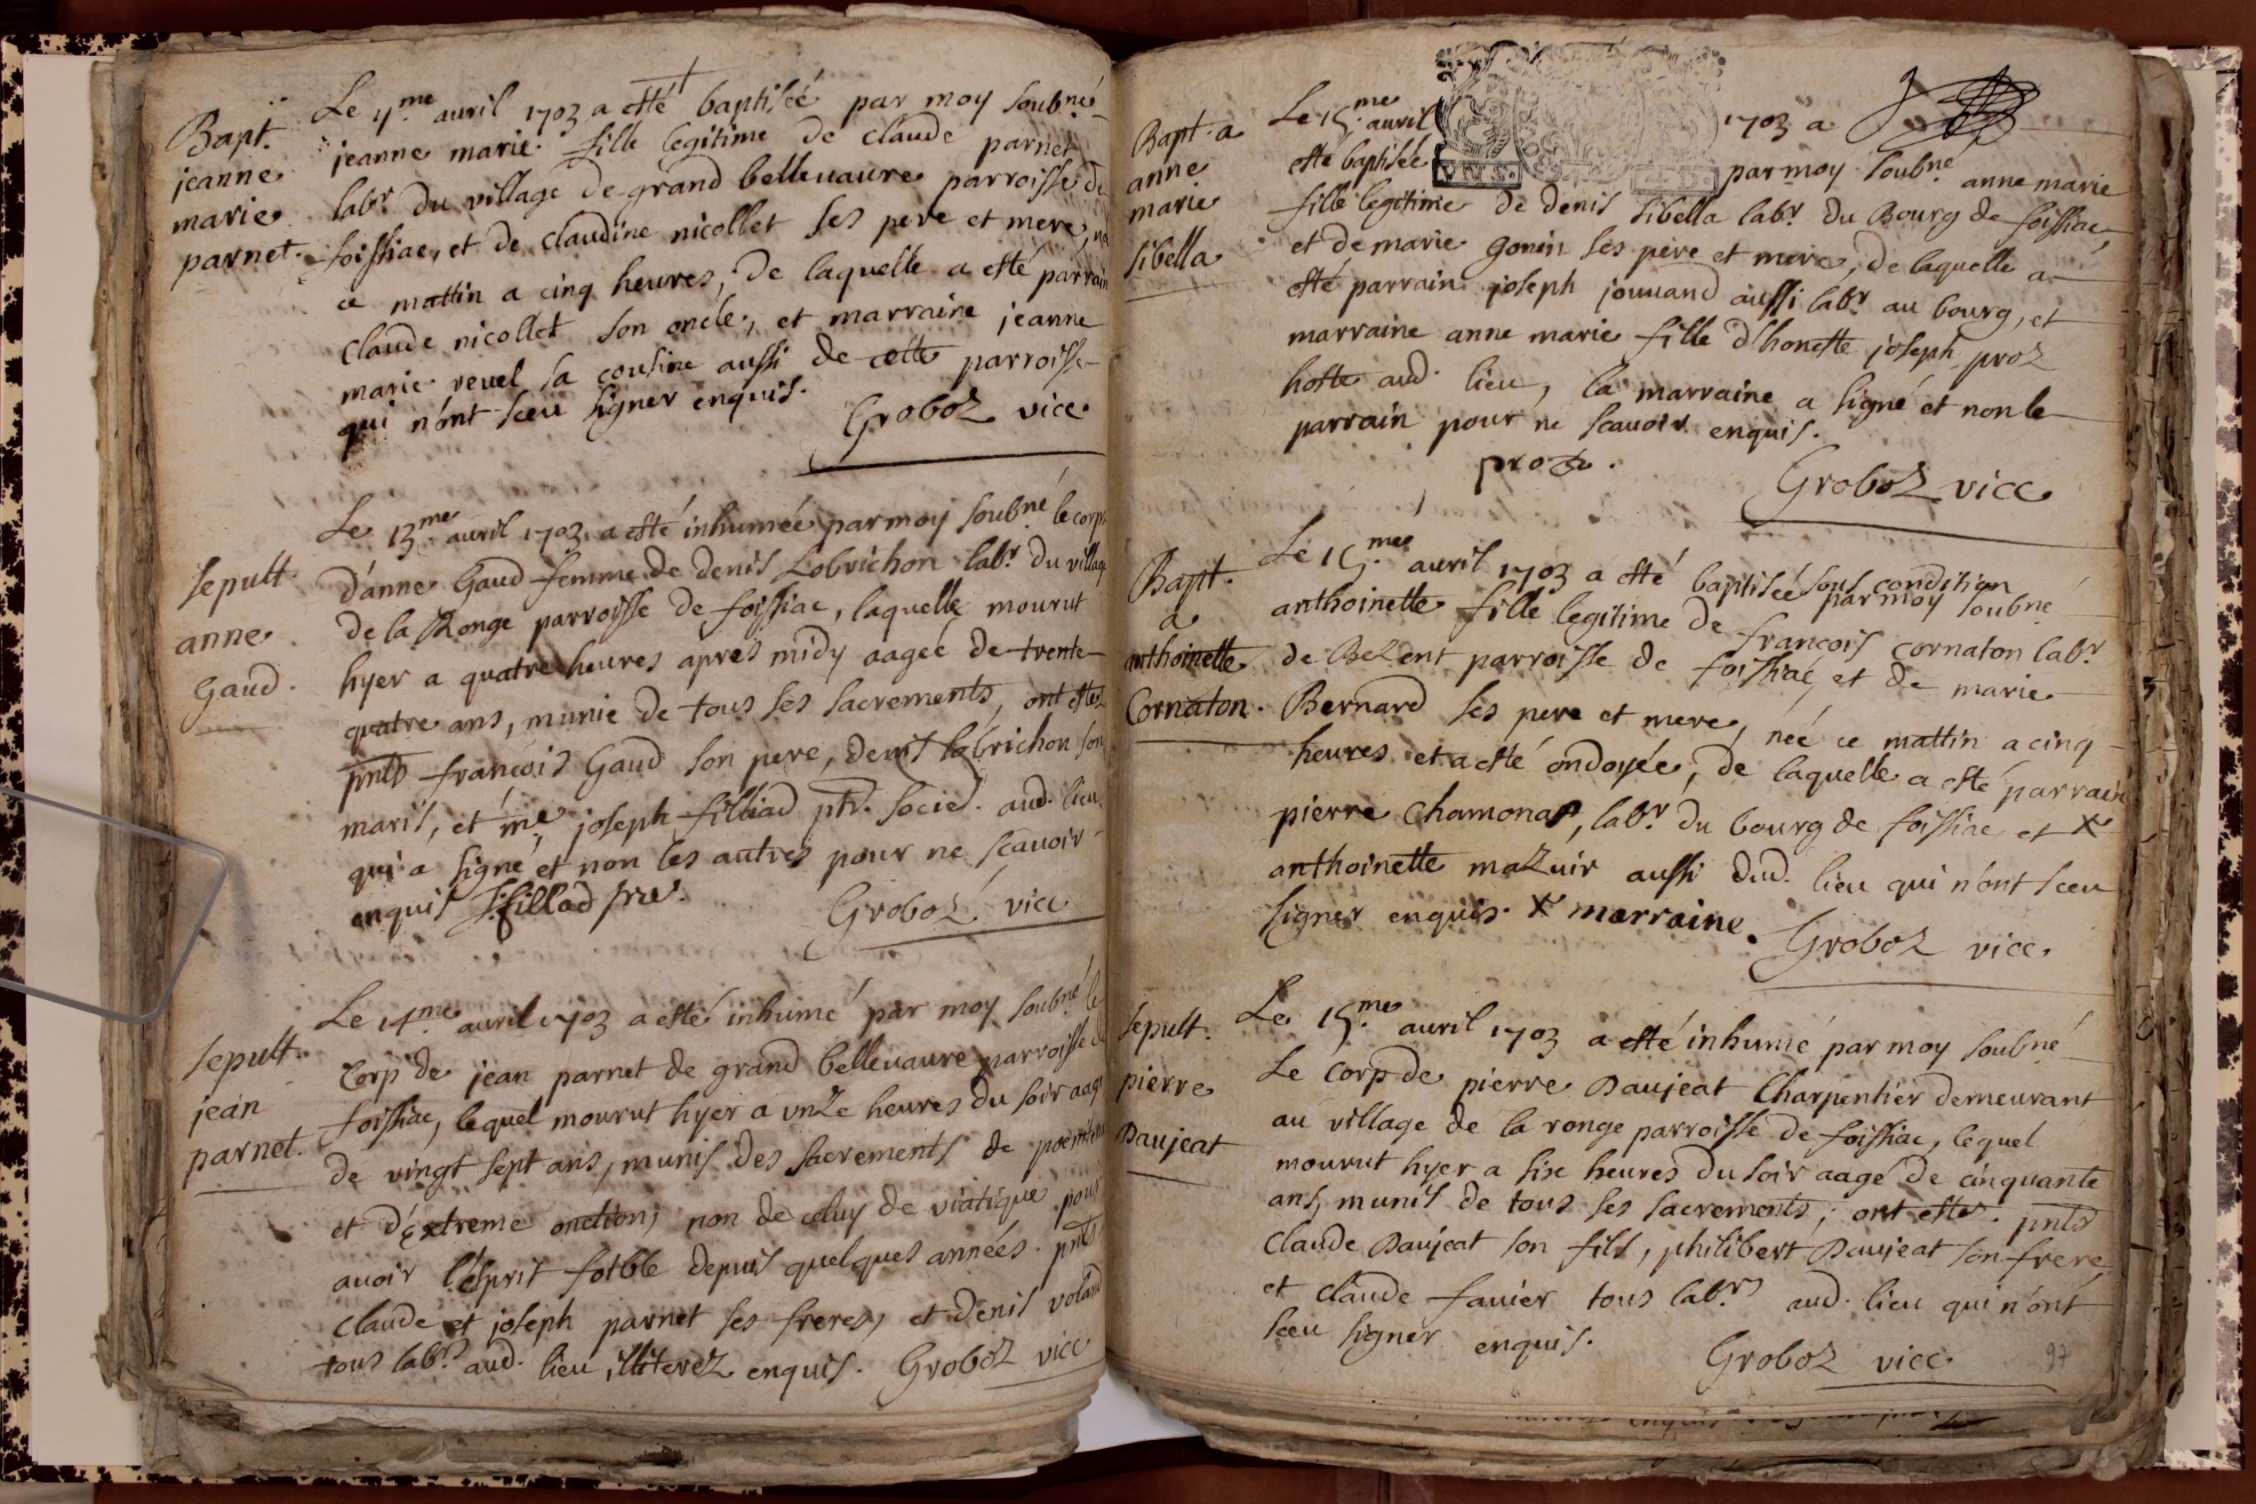 Bapt.
jeanne
marie
parnet.
Le 11.me auril 1703 a esté baptiséé par moy soubné
jeanne marie fille legitime de claude parnet
labr. du village de grand belleuaure parroisse de
foissiac, et de claudine nicollet ses pere et mere, née
ce mattin a cinq heures, de laquelle a esté parrain
claude nicollet son oncle, et marraine jeanne
marie reuel sa cousine aussi de cette parroisse
qui n'ont sceu signer enquis.
Groboz vice
sepult.
anne
Gaud.
Le 13.me auril 1703 a esté inhumée par moy soubné le corp
d'anne Gaud femme de denis Lobrichon labr. du village
de la Ronge parroisse de foissiac, laquelle mourut
hyer a quatre heures apres midy aagée de trente
quatre ans, munie de tous ses sacrements, ont estez
pnts françois Gaud son pere, denis lobrichon son
maris, et me joseph filliad ptr. socied. aud. lieu
qui a signé et non les autres pour ne scauoir
enquis J. filliad ptre.
Groboz vice
sepult.
jean
parnet.
Le 14.me auril 1703 a esté inhumé par moy soubné le
Corp de jean parnet de grand belleuaure parroisse de
foissiac, lequel mourut hyer a unze heures du soir aagé
de vingt sept ans, munis des sacrements de poenitence
et d'éxtreme onction, non de celuy de viatique pour
auoir l'ésprit foible depuis quelques années. pnts
claude et joseph parnet ses freres, et denis voland
tous labrs aud. lieu, illiterez enquis. Groboz vice
Bapt. a
anne
marie
sibella
Le 15.me auril 1703 a
esté baptisée par moy soubné anne marie
fille legitime de denis sibella labr. du Bourg de foissiac,
et de marie gonin ses pere et mere, de laquelle a
esté parrain joseph jouuand aussi labr. au bourg, et
marraine anne marie fille d'honeste joseph proz
hoste aud. lieu, la marraine a signé et non le
parrain pour ne scauoir enquis.
proz.
Groboz vice
Bapt.
a
anthoinette
Cornaton.
Le 15.me auril 1703 a esté baptiséé sous condition
par moy soubné
anthoinette fille legitime de françois cornaton labr.
de Bezent parroisse de foissiac, et de marie
Bernard ses pere et mere, néé ce mattin a cinq
heures et a esté ondoyée, de laquelle a esté parrain
pierre Chamonas, labr. du bourg de foissiac et X
anthoinette mazuir aussi dud. lieu qui n'ont sceu
signer enquis. X marraine.
Groboz vice.
sepult.
pierre
Daujeat
Le 15.me auril 1703 a esté inhumé par moy soubné
Le corp de pierre Daujeat Charpentier demeurant
au village de la ronge parroisse de foissiac, lequel
mourut hyer a six heures du soir aagé de cinquante
ans, munis de tous ses sacrements; ont estez. pnts
claude Daujeat son fils, philibert Daujeat son frere
et claude fauier tous labrs aud. lieu qui n'ont
sceu signer enquis.
Groboz vice
97